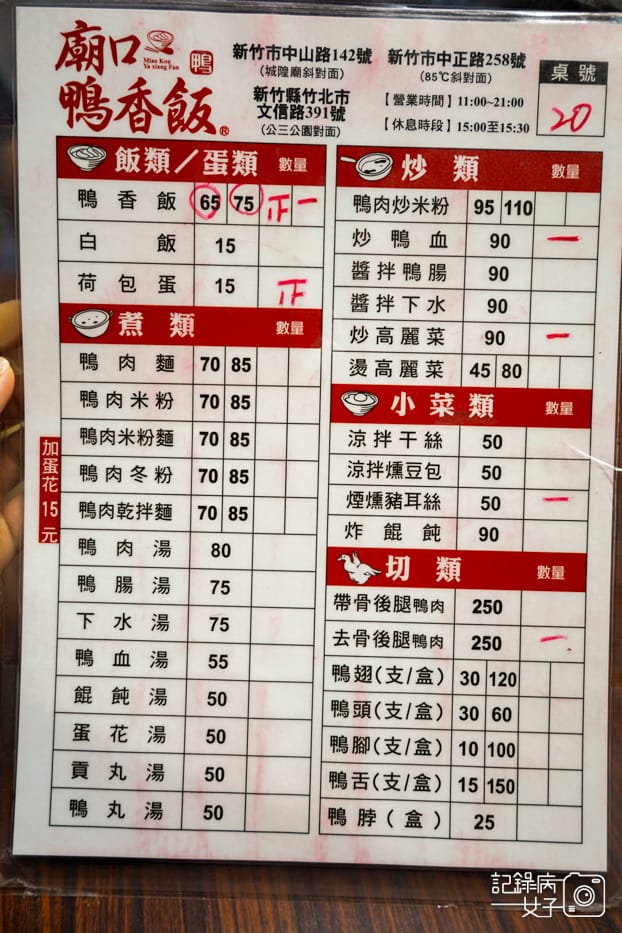 廟口
Miao Kou
Ya xiang Fan
鴨
鴨香飯®
新竹市中山路142號
(城隍廟斜對面)
新竹縣竹北市
文信路391號
(公三公園對面)
新竹市中正路258號
(85℃斜對面)
【營業時間】11:00~21:00
【休息時段】15:00至15:30
桌號
20
飯類／蛋類 數量
鴨香飯 65 75 正 一
白飯 15
荷包蛋 15 正
煮類 數量
鴨肉麵 70 85
鴨肉米粉 70 85
鴨肉米粉麵 70 85
鴨肉冬粉 70 85
鴨肉乾拌麵 70 85
鴨肉湯 80
鴨腸湯 75
下水湯 75
鴨血湯 55
餛飩湯 50
蛋花湯 50
貢丸湯 50
鴨丸湯 50
加蛋花15元
炒類 數量
鴨肉炒米粉 95 110
炒鴨血 90 一
醬拌鴨腸 90
醬拌下水 90
炒高麗菜 90 一
燙高麗菜 45 80
小菜類 數量
涼拌干絲 50
涼拌燻豆包 50
煙燻豬耳絲 50 一
炸餛飩 90
切類 數量
帶骨後腿鴨肉 250
去骨後腿鴨肉 250 一
鴨翅(支/盒) 30 120
鴨頭(支/盒) 30 60
鴨腳(支/盒) 10 100
鴨舌(支/盒) 15 150
鴨脖(盒) 25
記錄病
女子